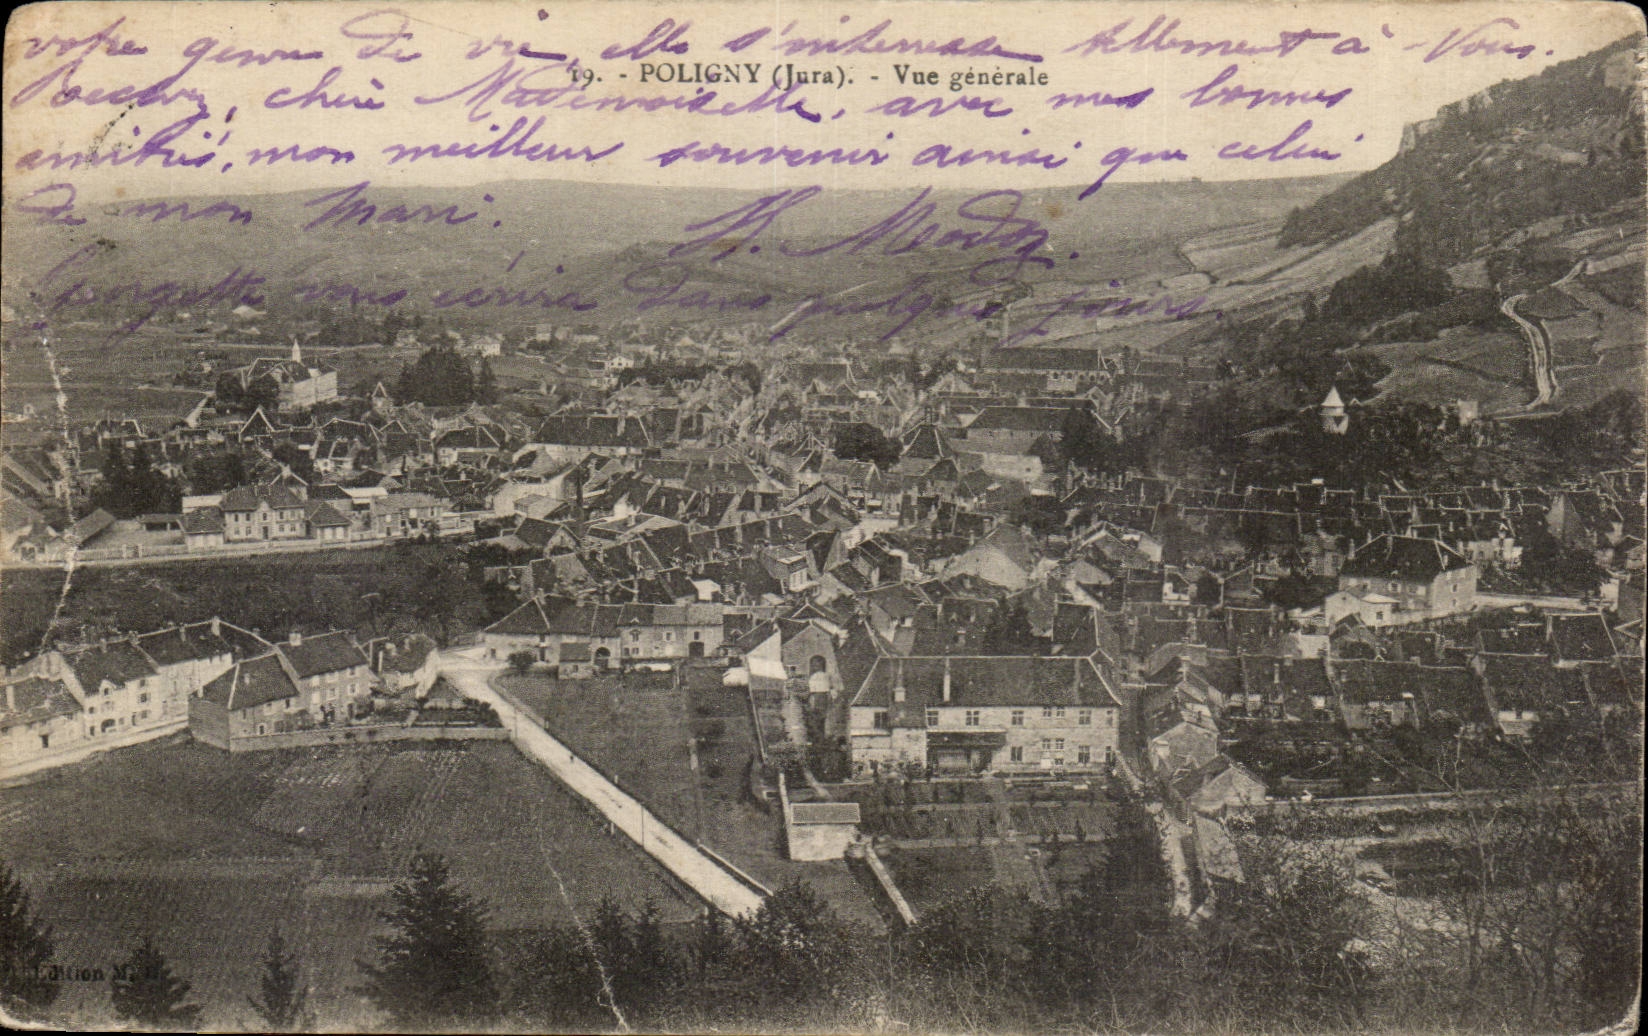 votre genre de vie, elle s'intéresse tellement à Vous.
19. - POLIGNY (Jura). - Vue générale
Recevez, chère Mademoiselle, avec mes bonnes
amitiés, mon meilleur souvenir ainsi que celui
de mon Mari.
Georgette vous écrira dans quelques jours.
Edition M.